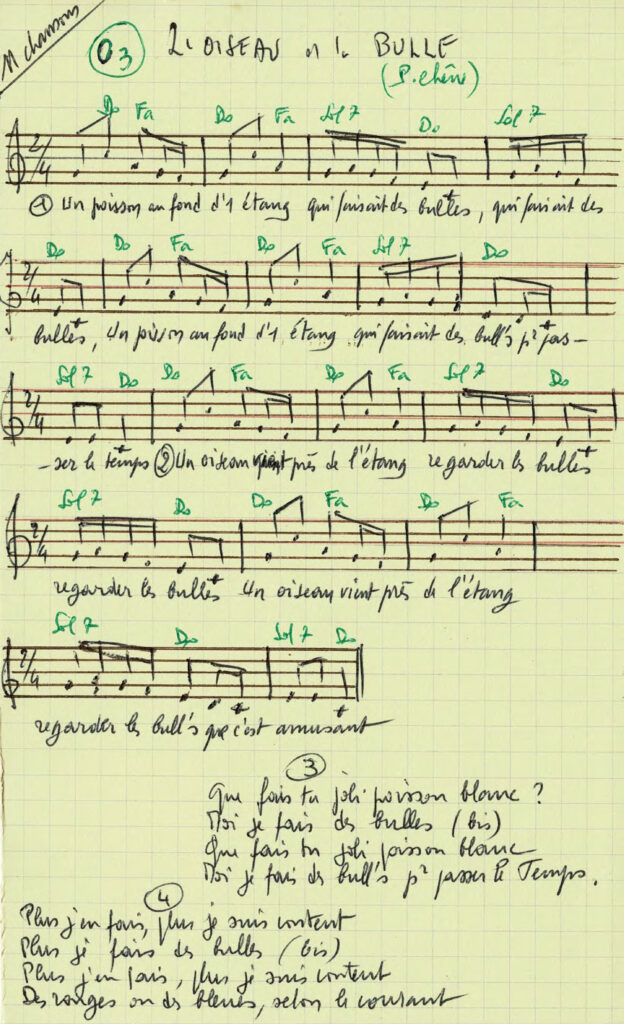 M chansons
03 L'OISEAU et la BULLE
(P. chêne)
Do Fa Do Fa Sol 7 Do Sol 7
2/4
① Un poisson au fond d'1 étang qui faisait des bulles, qui faisait des
Do Do Fa Do Fa Sol 7 Do
2/4
bulles, Un poisson au fond d'1 étang qui faisait des bull's pr pas-
Sol 7 Do Do Fa Do Fa Sol 7 Do
2/4
-ser le temps ② Un oiseau vient près de l'étang regarder les bulles
Sol 7 Do Do Fa Do Fa
2/4
regarder les bulles Un oiseau vient près de l'étang
Sol 7 Do Sol 7 Do
2/4
regarder les bull's que c'est amusant
③
Que fais tu joli poisson blanc ?
Moi je fais des bulles (bis)
Que fais tu joli poisson blanc
Moi je fais des bull's pr passer le Temps.
④
Plus j'en fais, plus je suis content
Plus je fais des bulles (bis)
Plus j'en fais, plus je suis content
Des rouges ou des bleues, selon le courant